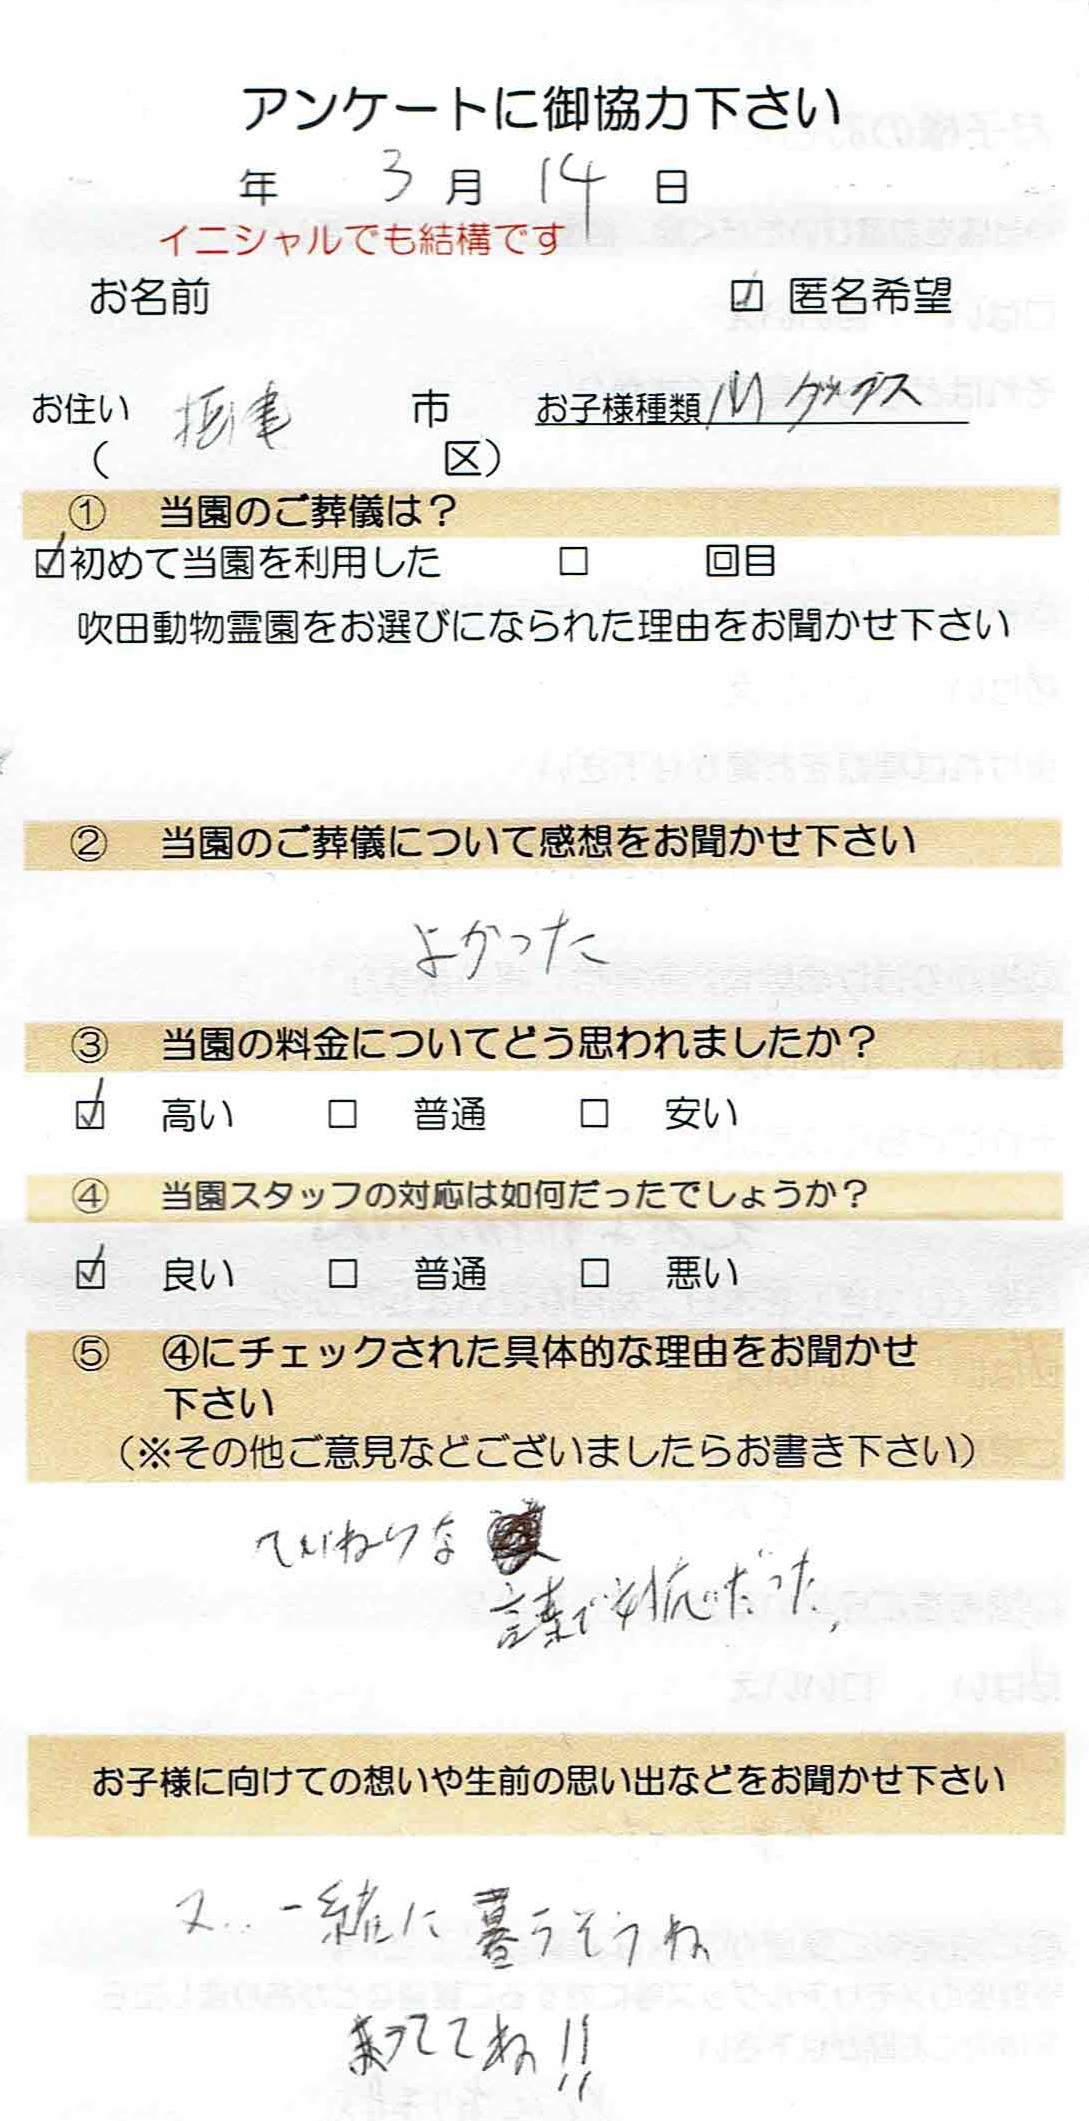 アンケートに御協力下さい
年 3 月 14 日
イニシャルでも結構です
お名前 ☑ 匿名希望
お住い 摂津 市 お子様種類 Mダックス
( 区)
① 当園のご葬儀は？
☑初めて当園を利用した □ 回目
吹田動物霊園をお選びになられた理由をお聞かせ下さい
② 当園のご葬儀について感想をお聞かせ下さい
よかった
③ 当園の料金についてどう思われましたか？
☑ 高い □ 普通 □ 安い
④ 当園スタッフの対応は如何だったでしょうか？
☑ 良い □ 普通 □ 悪い
⑤ ④にチェックされた具体的な理由をお聞かせ
下さい
（※その他ご意見などございましたらお書き下さい）
ていねいな
言葉で対応だった,
お子様に向けての想いや生前の思い出などをお聞かせ下さい
又... 一緒に暮うそうね
ててね!!